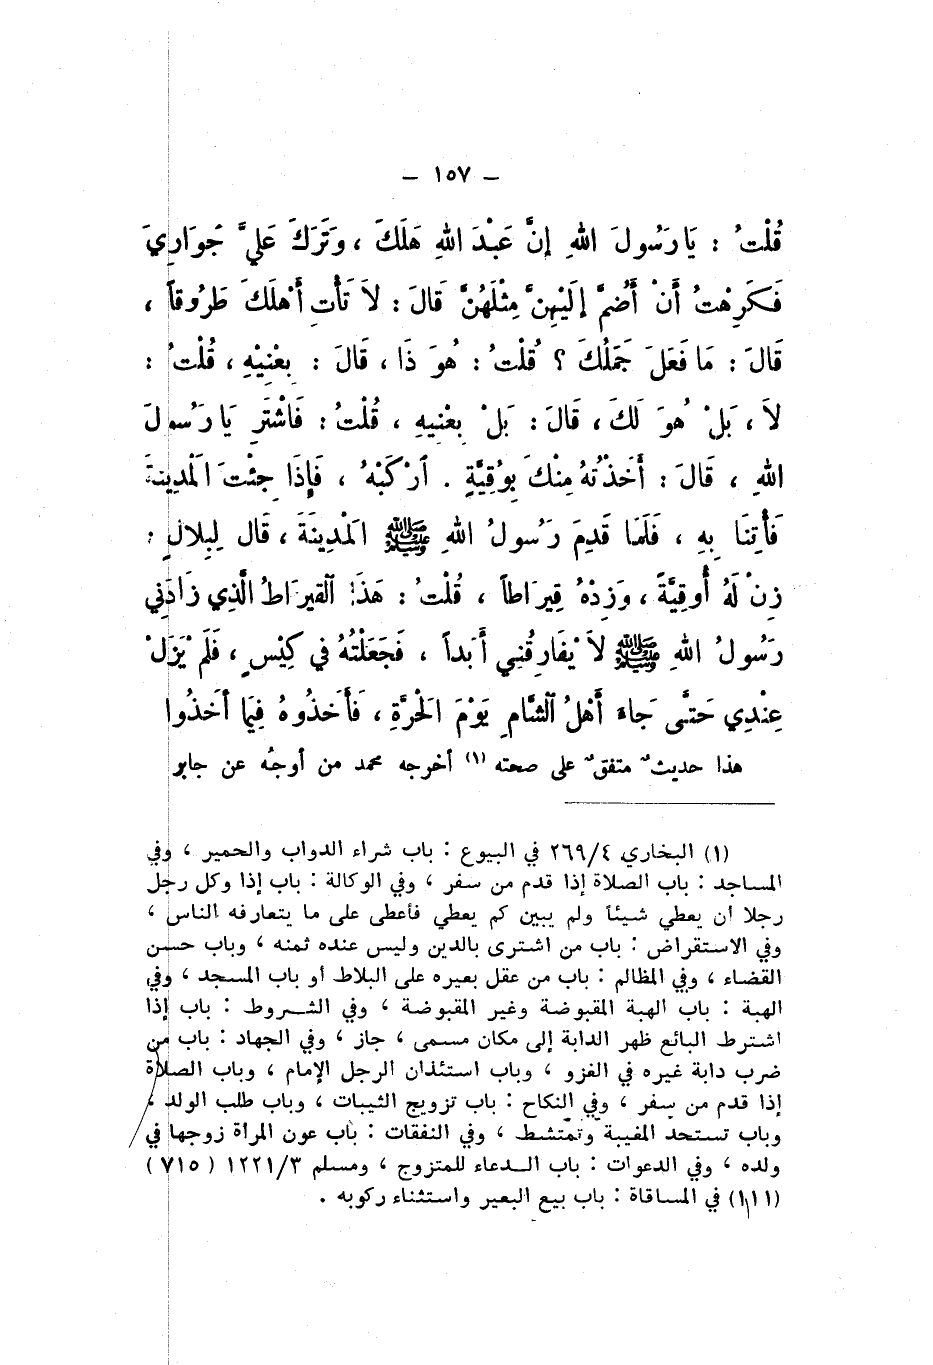 – ١٥٧ –
قُلْتُ : يَا رَسُولَ اللهِ إِنَّ عَبْدَ اللهِ هَلَكَ ، وَتَرَكَ عَلَيَّ جَوَارِيَ
فَكَرِهْتُ أَنْ أَضُمَّ إِلَيْهِنَّ مِثْلَهُنَّ قَالَ : لاَ تَأْتِ أَهْلَكَ طَرُوقاً ،
قَالَ : مَا فَعَلَ جَمَلُكَ ؟ قُلْتُ : هُوَ ذَا ، قَالَ : بِعْنِيْهِ ، قُلْتُ :
لاَ ، بَلْ هُوَ لَكَ ، قَالَ : بَلْ بِعْنِيهِ ، قُلْتُ : فَاشْتَرِ يَا رَسُولَ
اللهِ ، قَالَ : أَخَذْتُهُ مِنْكَ بِوُقِيَّةٍ . ارْكَبْهُ ، فَإِذَا جِئْتَ الْمَدِينَةَ
فَأْتِنَا بِهِ ، فَلَمَّا قَدِمَ رَسُولُ اللهِ ﷺ الْمَدِينَةَ ، قَالَ لِبِلالٍ :
زِنْ لَهُ أُوقِيَّةً ، وَزِدْهُ قِيرَاطاً ، قُلْتُ : هَذَا القِيرَاطُ الَّذِي زَادَنِي
رَسُولُ اللهِ ﷺ لاَ يُفَارِقُنِي أَبَداً ، فَجَعَلْتُهُ فِي كِيْسٍ ، فَلَمْ يَزَلْ
عِنْدِي حَتَّى جَاءَ أَهْلُ الشَّامِ يَوْمَ الْحَرَّةِ ، فَأَخَذُوهُ فِيمَا أَخَذُوا
هذا حديثٌ متفقٌ على صحته (١) أخرجه محمد من أوجُه عن جابر
(١) البخاري ٢٦٩/٤ في البيوع : باب شراء الدواب والحمير ، وفي
المساجد : باب الصلاة إذا قدم من سفر ، وفي الوكالة : باب إذا وكل رجل
رجلا أن يعطي شيئاً ولم يبين كم يعطي فأعطى على ما يتعارفه الناس ،
وفي الاستقراض : باب من اشترى بالدين وليس عنده ثمنه ، وباب حسن
القضاء ، وفي المظالم : باب من عقل بعيره على البلاط أو باب المسجد ، وفي
الهبة : باب الهبة المقبوضة وغير المقبوضة ، وفي الشروط : باب إذا
اشترط البائع ظهر الدابة إلى مكان مسمى ، جاز ، وفي الجهاد : باب من
ضرب دابة غيره في الغزو ، وباب استئذان الرجل الإمام ، وباب الصلاة
إذا قدم من سفر ، وفي النكاح : باب تزويج الثيبات ، وباب طلب الولد ،
وباب تستحد المغيبة وتمتشط ، وفي النفقات : باب عون المرأة زوجها في
ولده ، وفي الدعوات : باب الدعاء للمتزوج ، ومسلم ١٢٢١/٣ (٧١٥)
(١١١) في المساقاة : باب بيع البعير واستثناء ركوبه .